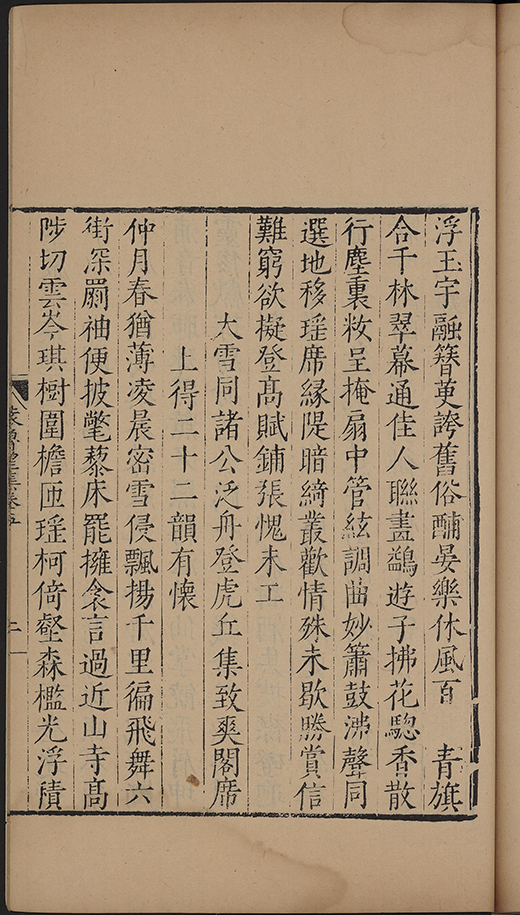 浮玉宇融簪萸誇舊俗酺晏樂休風百　青旗
合千林翠幕通佳人聯畫鷁遊子拂花驄香散
行塵裏粧呈掩扇中管絃調曲妙簫鼓沸聲同
選地移瑶席縁隄暗綺叢歡情殊未歇勝賞信
難窮欲擬登高賦鋪張愧未工
大雪同諸公泛舟登虎丘集致爽閣席
上得二十二韻有懷
仲月春猶薄凌晨密雪侵飄揚千里徧飛舞六
街深罽袖便披氅藜床罷擁衾言過近山寺高
陟切雲岑琪樹圍檐匝瑶柯倚壑森檻光浮積